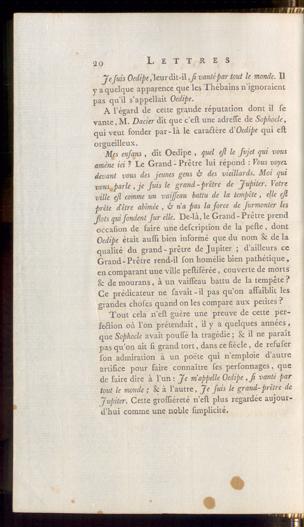 20 LETTRES
Je suis Oedipe, leur dit-il, si vanté par tout le monde. Il
y a quelque apparence que les Thébains n'ignoraient
pas qu'il s'appellait Oedipe.
A l'égard de cette grande réputation dont il se
vante, M. Dacier dit que c'est une adresse de Sophocle,
qui veut fonder par-là le caractère d'Oedipe qui est
orgueilleux.
Mes enfans, dit Oedipe, quel est le sujet qui vous
amène ici ? Le Grand-Prêtre lui répond : Vous voyez
devant vous des jeunes gens & des vieillards. Moi qui
vous parle, je suis le grand-prêtre de Jupiter. Votre
ville est comme un vaisseau battu de la tempête, elle est
prête d'être abîmée, & n'a pas la force de surmonter les
flots qui fondent sur elle. De-là, le Grand-Prêtre prend
occasion de faire une description de la peste, dont
Oedipe était aussi bien informé que du nom & de la
qualité du grand-prêtre de Jupiter ; d'ailleurs ce
Grand-Prêtre rend-il son homélie bien pathétique,
en comparant une ville pestiférée, couverte de morts
& de mourans, à un vaisseau battu de la tempête ?
Ce prédicateur ne savait-il pas qu'on affaiblit les
grandes choses quand on les compare aux petites ?
Tout cela n'est guère une preuve de cette per-
fection où l'on prétendait, il y a quelques années,
que Sophocle avait poussé la tragédie ; & il ne paraît
pas qu'on ait si grand tort, dans ce siècle, de refuser
son admiration à un poëte qui n'emploie d'autre
artifice pour faire connaître ses personnages, que
de faire dire à l'un : Je m'appelle Oedipe, si vanté par
tout le monde ; & à l'autre, Je suis le grand-prêtre de
Jupiter. Cette grossièreté n'est plus regardée aujour-
d'hui comme une noble simplicité.